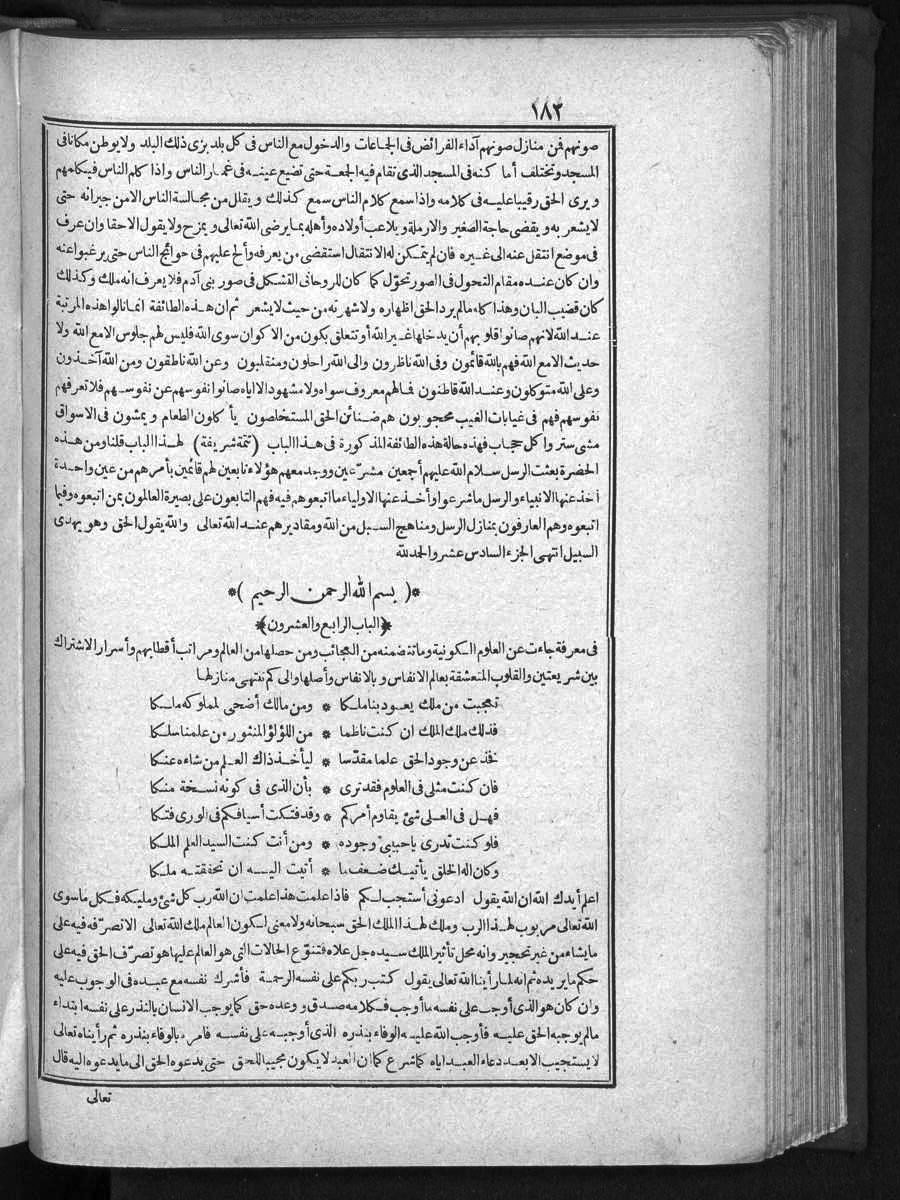 ١٨٢
صونهم فن منازل صونهم آداء الفرائض فى الجاعات والدخول مع الناس فى كل بلد بزى ذلك البلد ولا يوطن مكانا فى
المسجد وتختلف أما كنه فى المسجد الذى تقام فيه الجعة حتى تضيع عينه فى غمار الناس واذا كلم الناس فيكلمهم
ويرى الحق رقيبا عليه فى كلامه واذا سمع كلام الناس سمع كذلك ويقلل من مجالسة الناس الامن جيرانه حتى
لا يشعر به ويقضى حاجة الصغير والارملة ويلاعب أولاده وأهله بما يرضى الله تعالى ويمزح ولا يقول الاحقا وان عرف
فى موضع انتقل عنه الى غيره فان لم يتمكن له الانتقال استقضى من يعرفه وألح عليهم فى حوائج الناس حتى يرغبوا عنه
وان كان عنده مقام التحول فى الصور تحوّل كما كان للروحانى التشكل فى صور بنى آدم فلا يعرف انه ملك وكذلك
كان قضيب البان وهذا كله مالم يرد الحق اظهاره ولا شهرته من حيث لا يشعر ثم ان هذه الطائفة انما نالوا هذه المرتبة
عند الله لانهم صانوا قلوبهم أن يدخلها غير الله أو تتعلق بكون من الاكوان سوى الله فليس لهم جلوس الامع الله ولا
حديث الامع الله فهم بالله قائمون وفى الله ناظرون والى الله راحلون ومنقلبون وعن الله ناطقون ومن الله آخذون
وعلى الله متوكلون وعند الله قاطنون فالهم معروف سواه ولا مشهود الا اياه صانوا نفوسهم عن نفوسهم فلا تعرفهم
نفوسهم فهم فى غيابات الغيب محجوبون هم ضنائن الحق المستخلصون يأكلون الطعام ويمشون فى الاسواق
مشى ستر وأكل حجاب فهذه حالة هذه الطائفة المذكورة فى هذا الباب (تتمة شريفة) لهذا الباب قلنا ومن هذه
الحضرة بعثت الرسل سلام الله عليهم أجمعين مشرّعين ووجد معهم هؤلاء تابعين لهم قائمين بأمرهم من عين واحدة
أخذ عنها الانبياء والرسل ما شرعوا وأخذ عنها الاولياء ما اتبعوهم فيه فهم التابعون على بصيرة العالمون بمن اتبعوه وفيما
اتبعوه وهم العارفون بمنازل الرسل ومناهج السبل من الله ومقاديرهم عند الله تعالى والله يقول الحق وهو يهدى
السبيل انتهى الجزء السادس عشر والحمد لله
*( بسم الله الرحمن الرحيم )*
﴿الباب الرابع والعشرون﴾
فى معرفة جاءت عن العلوم الكونية وما تتضمنه من العجائب ومن حصلها من العالم ومراتب أقطابهم وأسرار الاشتراك
بين شريعتين والقلوب المتعشقة بعالم الانفاس وبالانفاس وأصلها والى كم تنتهى منازلها
تعجبت من ملك يعود بنا ملكا * ومن مالك أضحى لمملوكه ملكا
فذلك ملك الملك ان كنت ناظما * من اللؤلؤ المنثور من علمنا سلكا
فخذ عن وجود الحق علما مقدّسا * ليأخذ ذاك العلم من شاءه عنكا
فان كنت مثلى فى العلوم فقد ترى * بأن الذى فى كونه نسخة منكا
فهل فى العلى شئ يقاوم أمركم * وقد فتكت أسيافكم فى الورى فتكا
فلو كنت تدرى يا حبيبى وجوده * ومن أنت كنت السيد العلم الملكا
وكان اله الخلق يأتيك ضعف ما * أتيت اليه ان تحققته ملكا
اعلم أيدك الله ان الله يقول ادعونى أستجب لكم فاذا علمت هذا علمت ان الله رب كل شئ ومليكه فكل ما سوى
الله تعالى مربوب لهذا الرب وملك لهذا الملك الحق سبحانه ولا معنى لكون العالم ملك الله تعالى الاتصرّفه فيه على
ما يشاء من غير تحجير وانه محل تأثير الملك سيده جل علاه فتنوّع الحالات التى هو العالم عليها هو تصرّف الحق فيه على
حكم ما يريده ثم انه لما رأينا الله تعالى يقول كتب ربكم على نفسه الرحمة فأشرك نفسه مع عبده فى الوجوب عليه
وان كان هو الذى أوجب على نفسه ما أوجب فكلامه صدق ووعده حق كما يوجب الانسان بالنذر على نفسه ابتداء
مالم يوجبه الحق عليه فأوجب الله عليه الوفاء بنذره الذى أوجبه على نفسه فامره بالوفاء بنذره ثم رأيناه تعالى
لا يستجيب الا بعد دعاء العبد اياه كما شرع كما ان العبد لا يكون مجيبا للحق حتى يدعوه الحق الى ما يدعوه اليه قال
تعالى